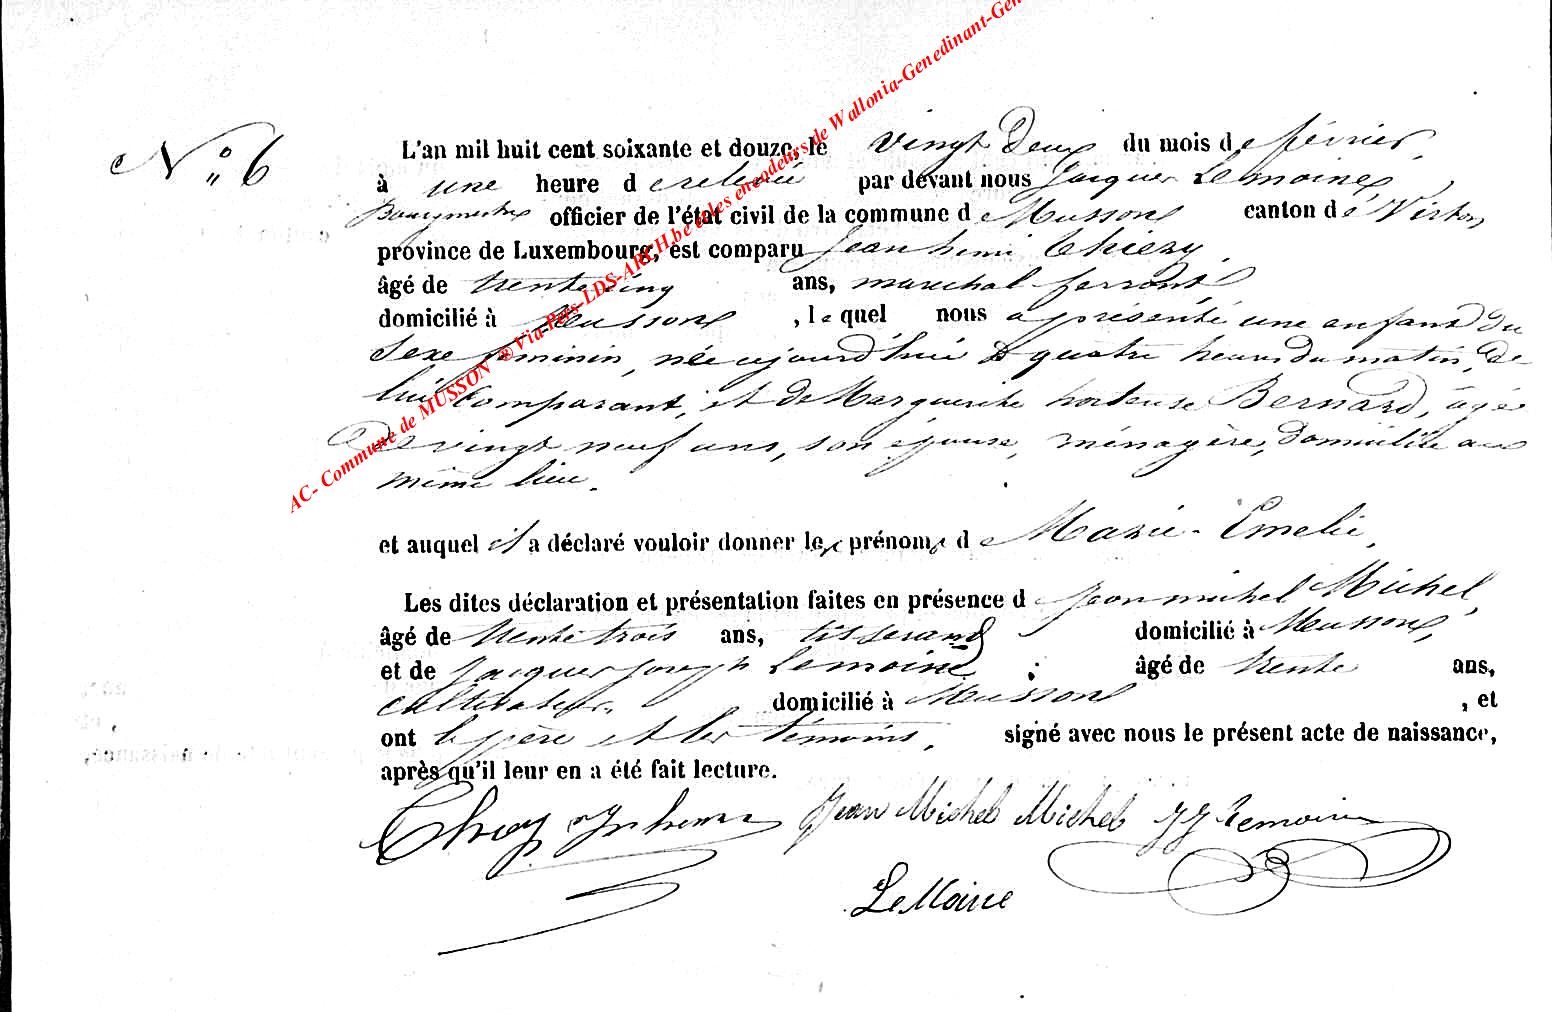 N° 6
L'an mil huit cent soixante et douze, le vingt deux du mois de février,
à une heure de relevée par devant nous Jacques Lemoine,
Bourgmestre officier de l'état civil de la commune de Musson canton de Virton,
province de Luxembourg, est comparu Jean henri Thiery,
âgé de trente cinq ans, marechal ferrant
domicilié à Musson, lequel nous a présenté une enfant du
sexe féminin, née aujourd'hui à quatre heures du matin, de
lui comparant, et de Marguerite hortense Bernard, âgée
de vingt neuf ans, son épouse, ménagère, domiciliée au
même lieu.
et auquel il a déclaré vouloir donner les prénoms de Marie-Emelie.
Les dites déclaration et présentation faites en présence de Jean michel Michel,
âgé de trente trois ans, tisserand domicilié à Musson,
et de Jacques Joseph Lemoine ; âgé de trente ans,
cultivateur, domicilié à Musson, et
ont le père et les témoins, signé avec nous le présent acte de naissance,
après qu'il leur en a été fait lecture.
Jean Michel Michel JJ Lemoine
LeMoine
AC- Commune de MUSSON ® Via Pers-LDS-ARCH.be et les encodeurs de Wallonia-Genedinant-Gen